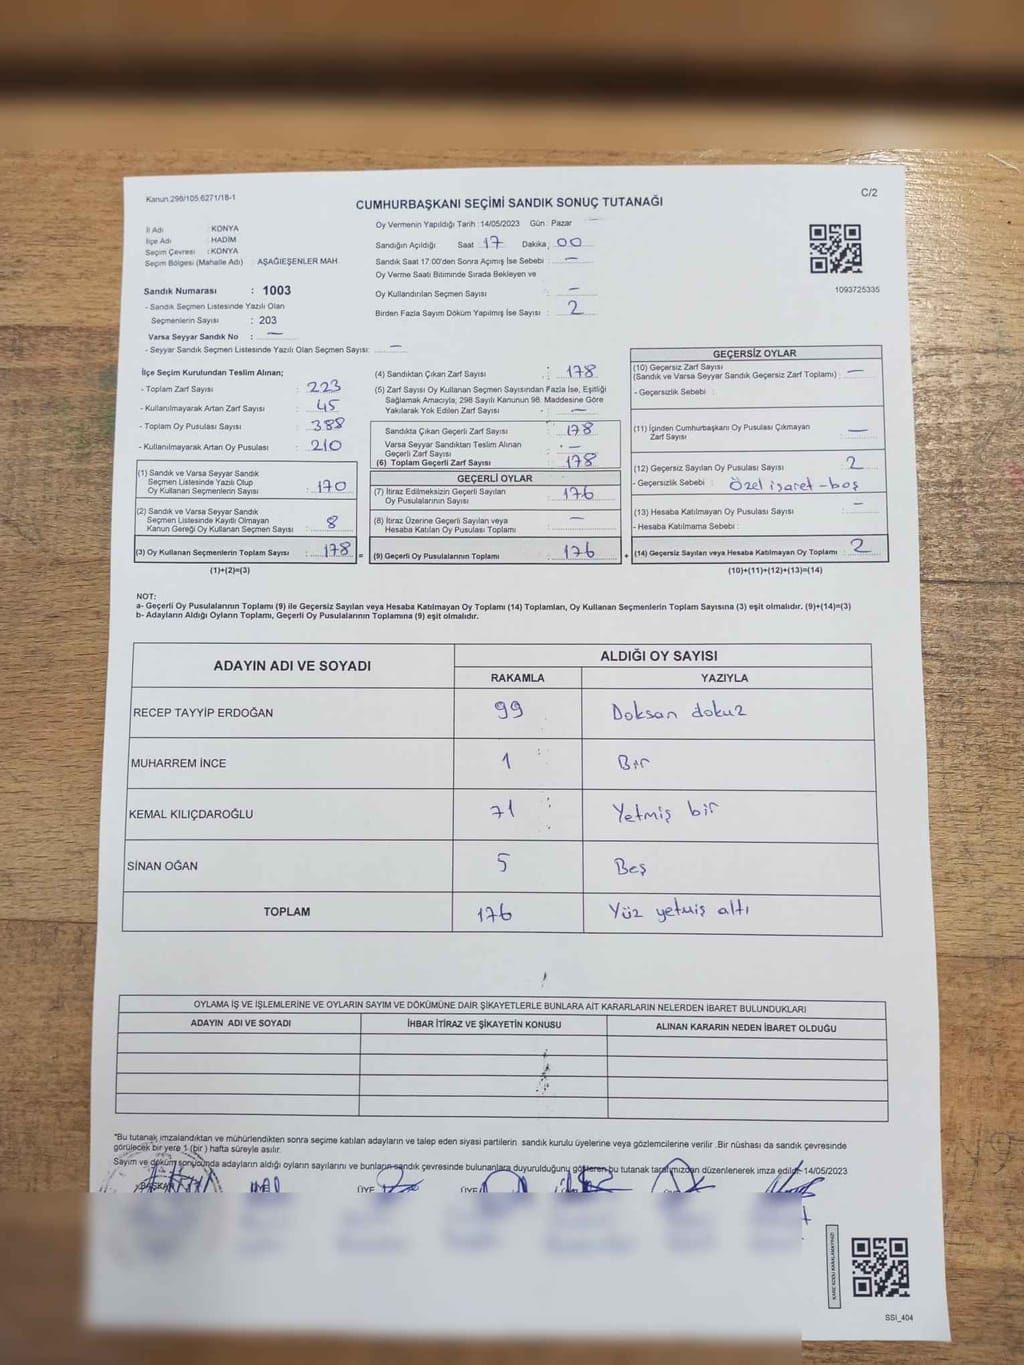 Kanun:298/105;6271/18-1
C/2
CUMHURBAŞKANI SEÇİMİ SANDIK SONUÇ TUTANAĞI
İl Adı : KONYA
İlçe Adı : HADIM
Seçim Çevresi : KONYA
Seçim Bölgesi (Mahalle Adı) AŞAĞIEŞENLER MAH.
Sandık Numarası : 1003
- Sandık Seçmen Listesinde Yazılı Olan
Seçmenlerin Sayısı : 203
Varsa Seyyar Sandık No : —
- Seyyar Sandık Seçmen Listesinde Yazılı Olan Seçmen Sayısı: —
Oy Vermenin Yapıldığı Tarih : 14/05/2023 Gün : Pazar
Sandığın Açıldığı Saat 17 Dakika 00
Sandık Saat 17:00'den Sonra Açımış İse Sebebi : —
Oy Verme Saati Bitiminde Sırada Bekleyen ve
Oy Kullandırılan Seçmen Sayısı : —
Birden Fazla Sayım Döküm Yapılmış İse Sayısı : 2
1093725335
İlçe Seçim Kurulundan Teslim Alınan;
- Toplam Zarf Sayısı : 223
- Kullanılmayarak Artan Zarf Sayısı : 45
- Toplam Oy Pusulası Sayısı : 388
- Kullanılmayarak Artan Oy Pusulası : 210
(1) Sandık ve Varsa Seyyar Sandık
Seçmen Listesinde Yazılı Olup
Oy Kullanan Seçmenlerin Sayısı : 170
(2) Sandık ve Varsa Seyyar Sandık
Seçmen Listesinde Kayıtlı Olmayan
Kanun Gereği Oy Kullanan Seçmen Sayısı : 8
(3) Oy Kullanan Seçmenlerin Toplam Sayısı : 178 =
(1)+(2)=(3)
(4) Sandıktan Çıkan Zarf Sayısı : 178
(5) Zarf Sayısı Oy Kullanan Seçmen Sayısından Fazla İse, Eşitliği
Sağlamak Amacıyla; 298 Sayılı Kanunun 98. Maddesine Göre
Yakılarak Yok Edilen Zarf Sayısı : —
Sandıkta Çıkan Geçerli Zarf Sayısı : 178
Varsa Seyyar Sandıktan Teslim Alınan
Geçerli Zarf Sayısı : —
(6) Toplam Geçerli Zarf Sayısı : 178
GEÇERLİ OYLAR
(7) İtiraz Edilmeksizin Geçerli Sayılan
Oy Pusulalarının Sayısı : 176
(8) İtiraz Üzerine Geçerli Sayılan veya
Hesaba Katılan Oy Pusulası Toplamı : —
(9) Geçerli Oy Pusulalarının Toplamı : 176 +
GEÇERSİZ OYLAR
(10) Geçersiz Zarf Sayısı
(Sandık ve Varsa Seyyar Sandık Geçersiz Zarf Toplamı) : —
- Geçersizlik Sebebi :
(11) İçinden Cumhurbaşkanı Oy Pusulası Çıkmayan
Zarf Sayısı : —
(12) Geçersiz Sayılan Oy Pusulası Sayısı : 2
- Geçersizlik Sebebi : Özel işaret - boş
(13) Hesaba Katılmayan Oy Pusulası Sayısı : —
- Hesaba Katılmama Sebebi :
(14) Geçersiz Sayılan veya Hesaba Katılmayan Oy Toplamı : 2
(10)+(11)+(12)+(13)=(14)
NOT:
a- Geçerli Oy Pusulalarının Toplamı (9) ile Geçersiz Sayılan veya Hesaba Katılmayan Oy Toplamı (14) Toplamları, Oy Kullanan Seçmenlerin Toplam Sayısına (3) eşit olmalıdır. (9)+(14)=(3)
b- Adayların Aldığı Oyların Toplamı, Geçerli Oy Pusulalarının Toplamına (9) eşit olmalıdır.
ADAYIN ADI VE SOYADI ALDIĞI OY SAYISI
RAKAMLA YAZIYLA
RECEP TAYYİP ERDOĞAN 99 Doksan dokuz
MUHARREM İNCE 1 Bir
KEMAL KILIÇDAROĞLU 71 Yetmiş bir
SİNAN OĞAN 5 Beş
TOPLAM 176 Yüz yetmiş altı
OYLAMA İŞ VE İŞLEMLERİNE VE OYLARIN SAYIM VE DÖKÜMÜNE DAİR ŞİKAYETLERLE BUNLARA AİT KARARLARIN NELERDEN İBARET BULUNDUKLARI
ADAYIN ADI VE SOYADI İHBAR İTİRAZ VE ŞİKAYETİN KONUSU ALINAN KARARIN NEDEN İBARET OLDUĞU
"Bu tutanak imzalandıktan ve mühürlendikten sonra seçime katılan adayların ve talep eden siyasi partilerin sandık kurulu üyelerine veya gözlemcilerine verilir .Bir nüshası da sandık çevresinde
görülecek bir yere 1 (bir ) hafta süreyle asılır.
Sayım ve döküm sonucunda adayların aldığı oyların sayılarını ve bunların sandık çevresinde bulunanlara duyurulduğunu gösteren bu tutanak tarafımızdan düzenlenerek imza edildi. 14/05/2023
BAŞKAN ÜYE ÜYE
KARE KODU KARALAMAYINIZ!
SSI_404